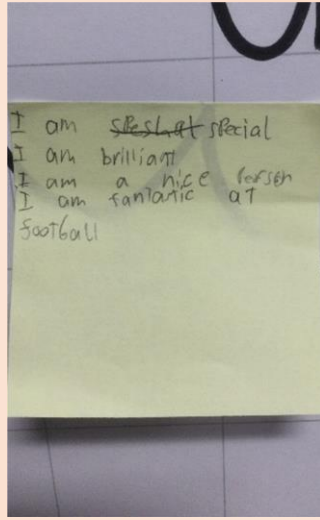 I am speshal special
I am brilliant
I am a nice person
I am fantastic at
football